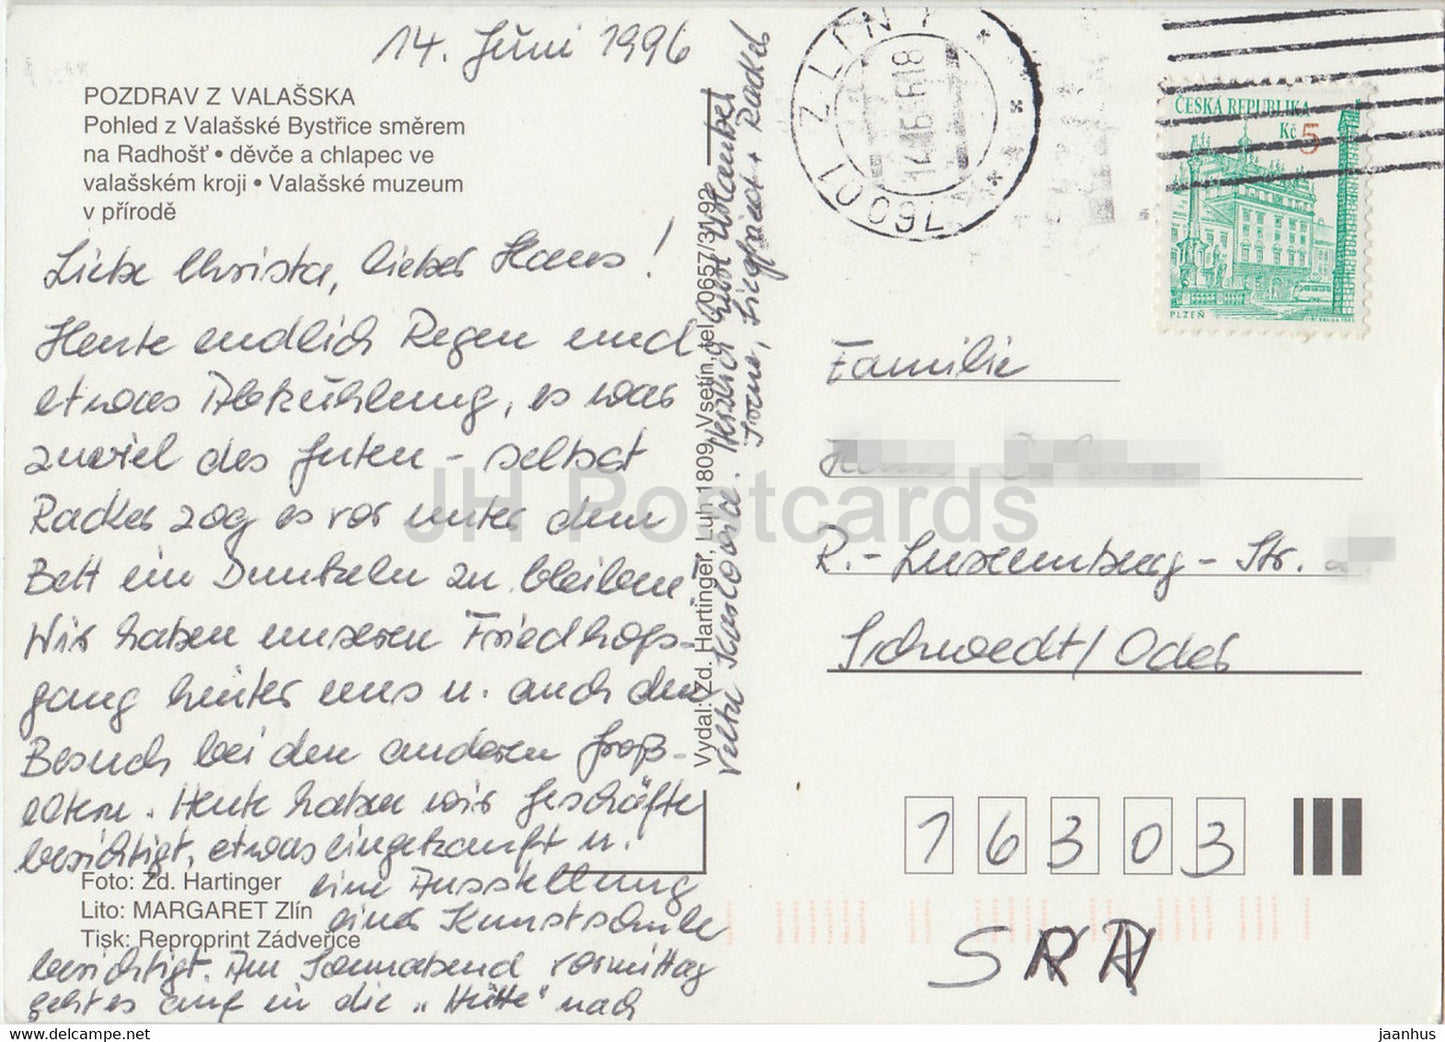 14. Juni 1996
POZDRAV Z VALAŠSKA
Pohled z Valašské Bystřice směrem
na Radhošť • děvče a chlapec ve
valašském kroji • Valašské muzeum
v přírodě
Liebe Christa, lieber Hans!
Heute endlich Regen und
etwas Abkühlung, es war
zuviel des Guten - selbst
Racker zog es vor unter dem
Bett im Dunkeln zu bleiben.
Wir haben unseren Friedhofs-
gang hinter uns u. auch den
Besuch bei den anderen Groß-
eltern. Heute haben wir Geschäfte
besichtigt, etwas eingekauft u.
eine Ausstellung
einer Kunstschule
besichtigt. Am Sonnabend vormittag
geht es auf in die "Hütte" nach
Velké Karlovice. Herzlich
Irene, Siegfried + Racker
Foto: Zd. Hartinger
Lito: MARGARET Zlín
Tisk: Reproprint Zádveřice
Vydal: Zd. Hartinger, Luh 1809, Vsetín, tel. 0657/3192
760 01 ZLÍN 1
14.-6.96 18
ČESKÁ REPUBLIKA
Kč 5
PLZEŇ
Familie
R.-Luxemburg-Str.
Schwedt/Oder
16303
SRN
JH Postcards
www.delcampe.net
jaanhus